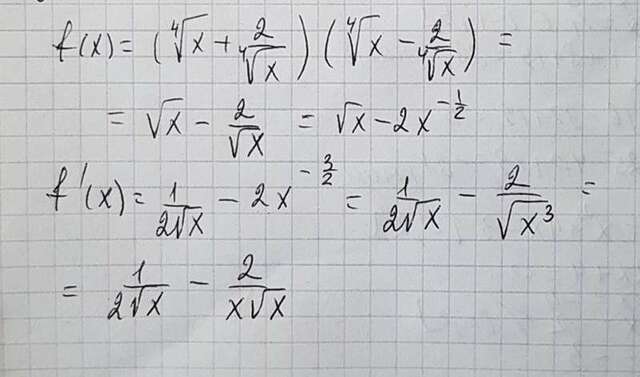 f(x) = (⁴√x + 2/⁴√x) (⁴√x − 2/⁴√x) =
= √x − 2/√x = √x − 2x^(−1/2)
f'(x) = 1/(2√x) − 2x^(−3/2) = 1/(2√x) − 2/√(x³) =
= 1/(2√x) − 2/(x√x)